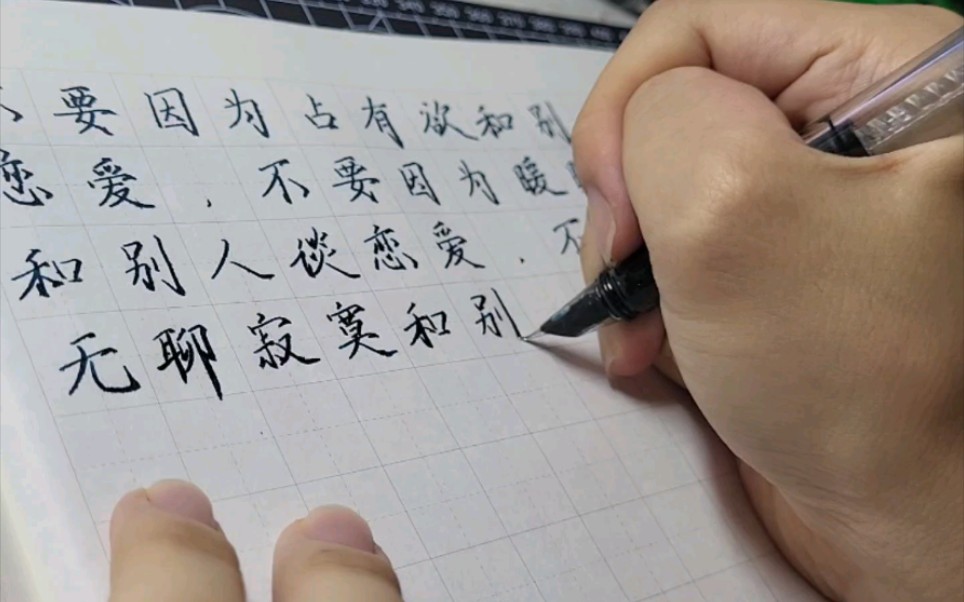 要因为占有欲和别
恋爱，不要因为暖
和别人谈恋爱，不
无聊寂寞和别